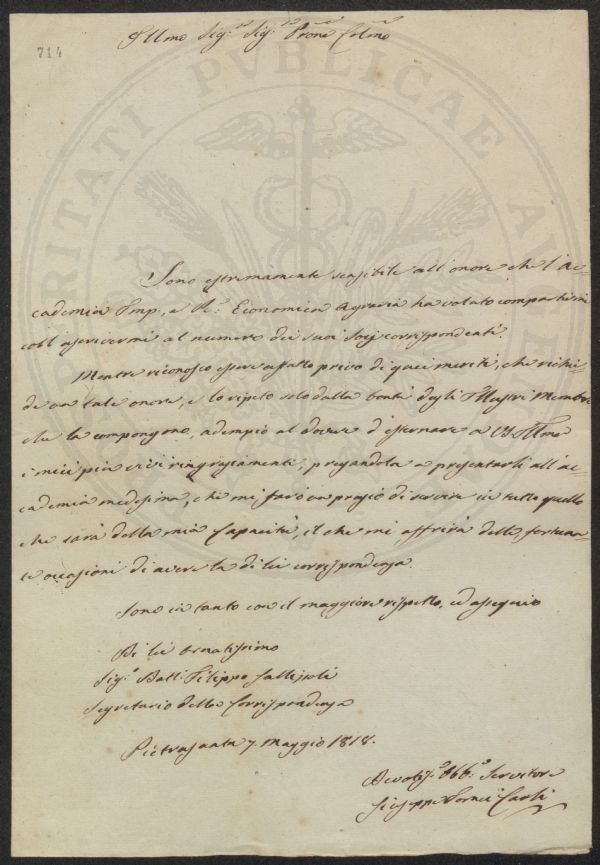 714
Illmo Sig.re Sig.re Prone Colmo
Sono estremamente sensibile all'onore che l'ac-
cademia Imp. e R.e Economica Agraria ha voluto compartirmi
coll'ascrivermi al numero dei suoi Socj corrispondenti.
Mentre riconosco essere affatto privo di quei meriti, che richie
de un tale onore, e lo ripeto solo dalla bontà degli Illustri Membri
che la compongono, adempio al dovere d'esternare a VS Illma
i miei più vivi ringraziamenti, pregandola a presentarli all'ac-
cademia medesima, che mi farò un pregio di servire in tutto quello
che sarà della mia Capacità, il che mi offrirà delle fortuna-
te occasioni di avere la di lei corrispondenza.
Sono in tanto con il maggiore rispetto, ed ossequio
Di lei Ornatissimo
Sig.e Dott. Filippo Gallizioli
Segretario delle Corrispondenze
Pietrasanta 7. Maggio 1818.
Devotis.o Obb.o Servitore
Giuseppe Carli
PERITATI PVBLICAE AVGEN